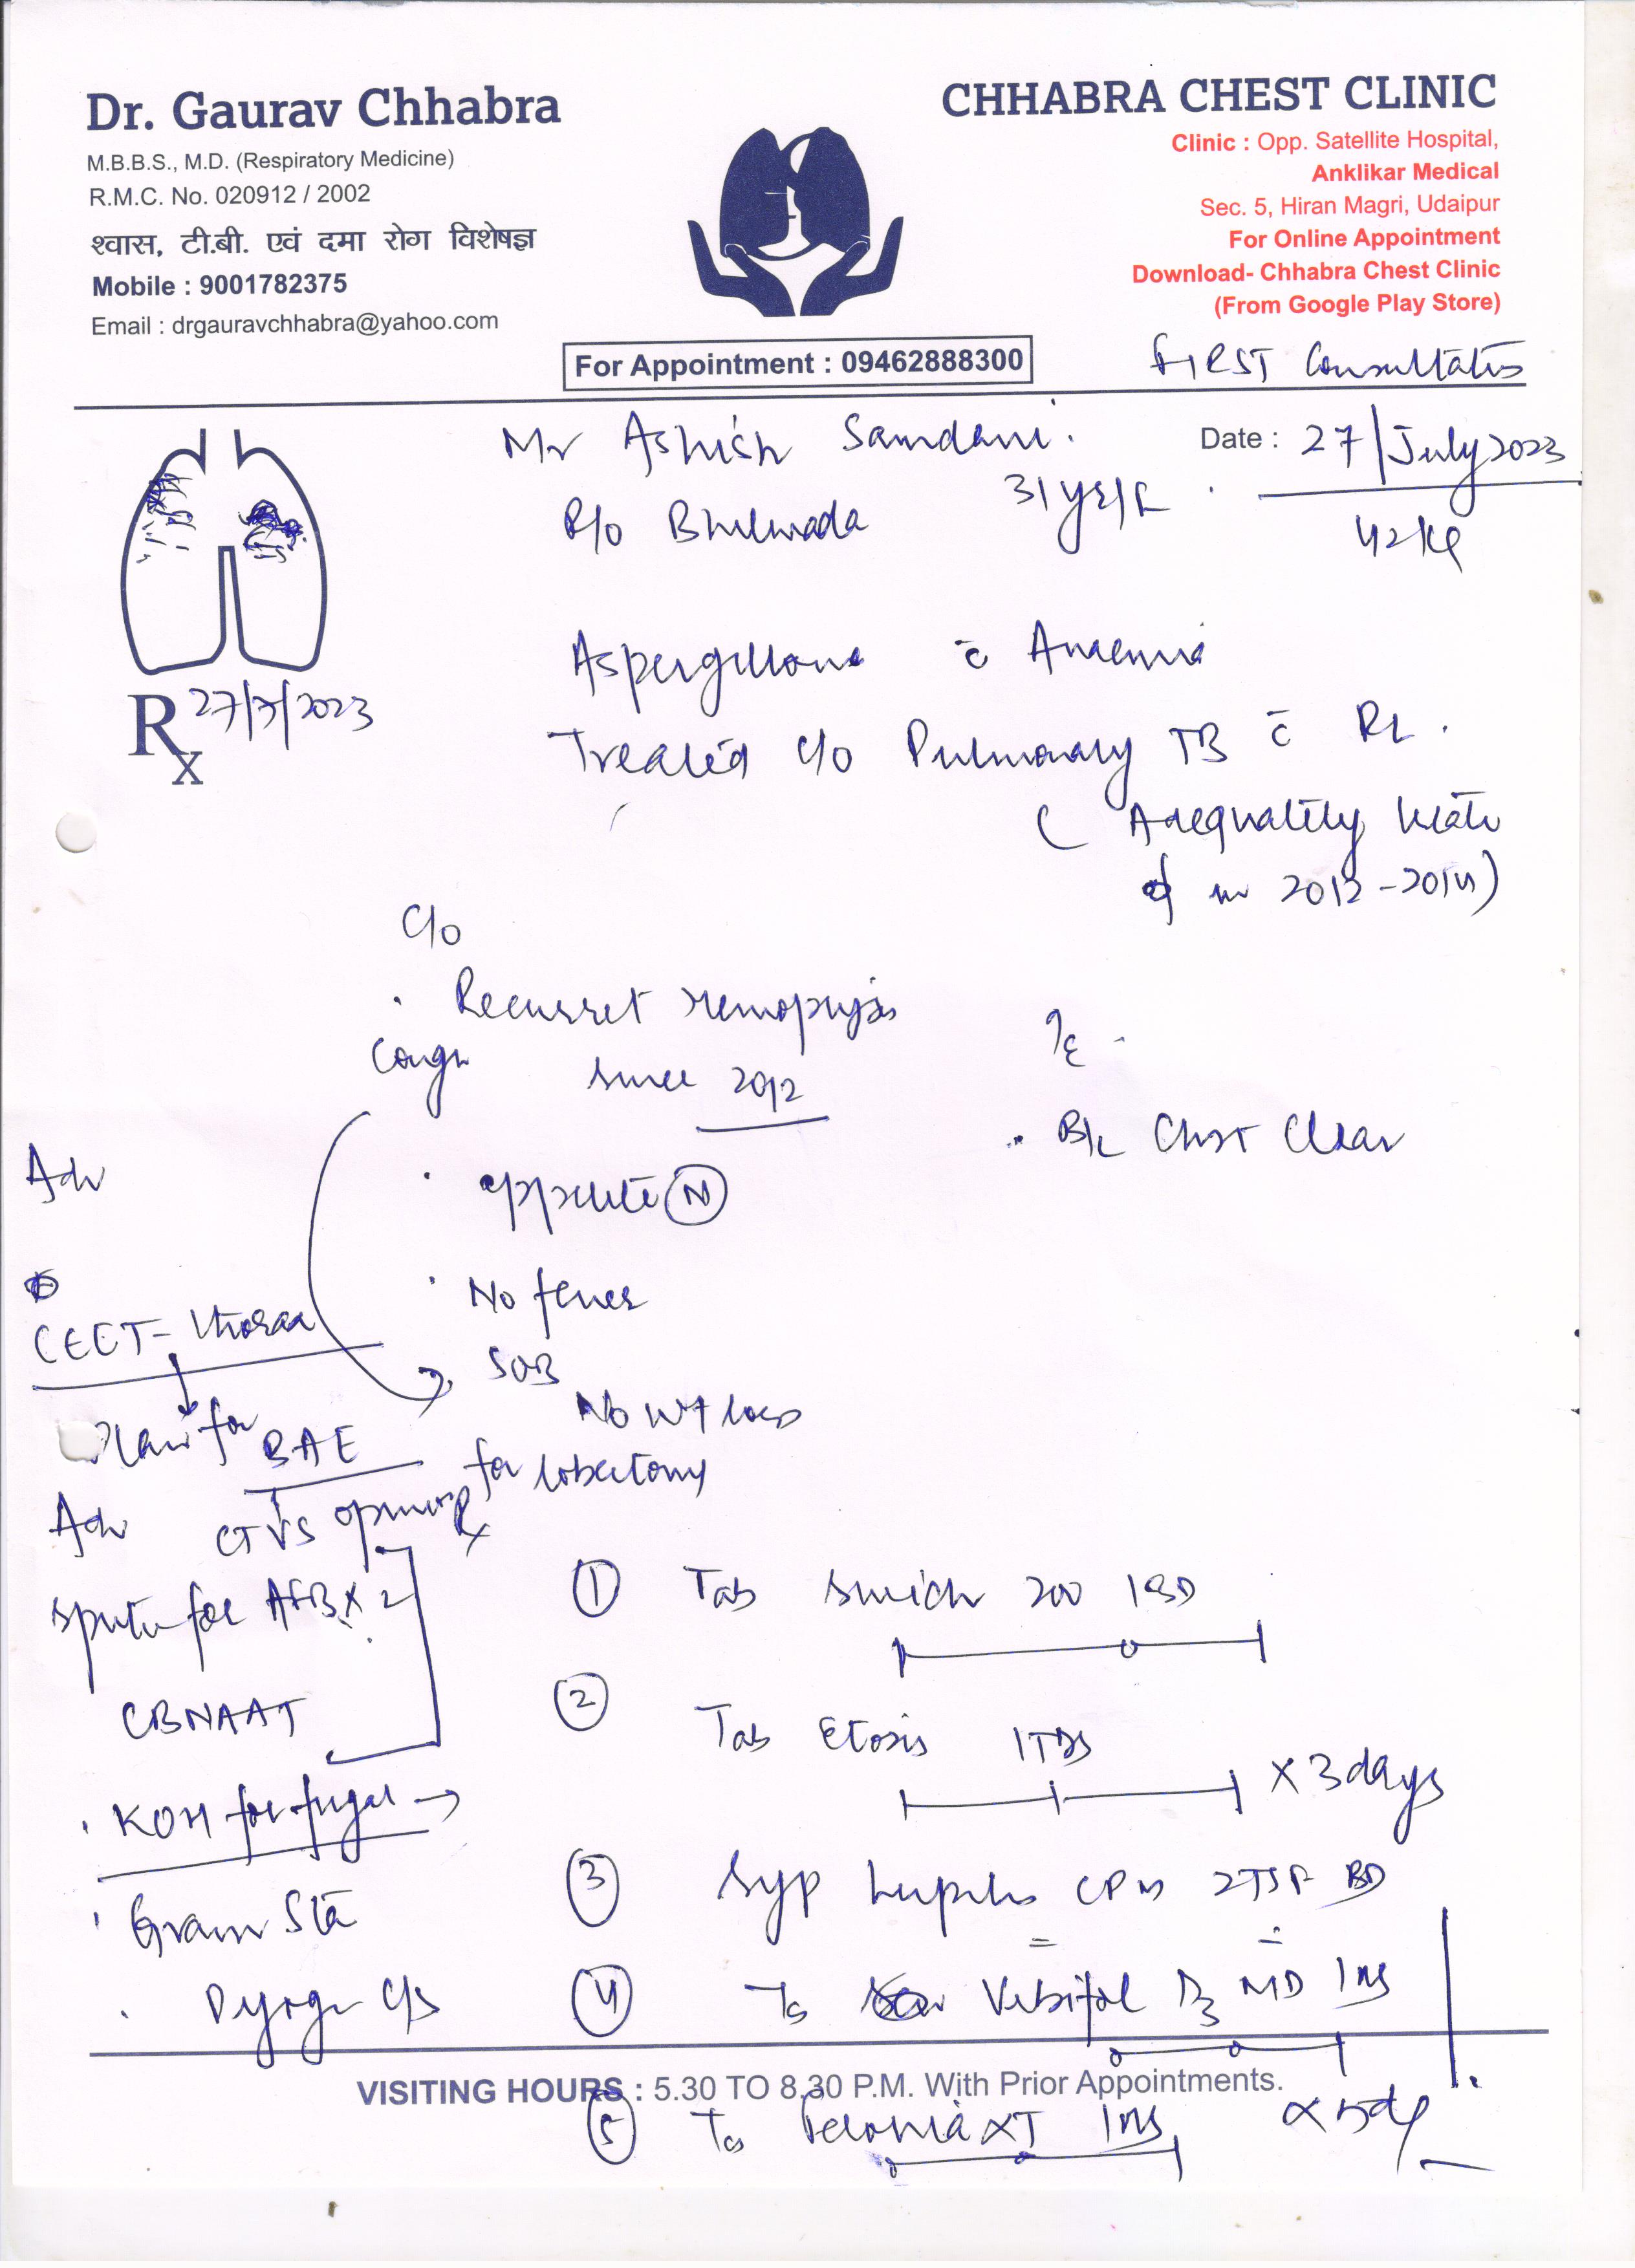 Dr. Gaurav Chhabra
M.B.B.S., M.D. (Respiratory Medicine)
R.M.C. No. 020912 / 2002
श्वास, टी.बी. एवं दमा रोग विशेषज्ञ
Mobile : 9001782375
Email : drgauravchhabra@yahoo.com
CHHABRA CHEST CLINIC
Clinic : Opp. Satellite Hospital,
Anklikar Medical
Sec. 5, Hiran Magri, Udaipur
For Online Appointment
Download- Chhabra Chest Clinic
(From Google Play Store)
For Appointment : 09462888300
FIRST Consultation
Mr Ashish Samdani.
Date : 27/July 2023
R/o Bhilwada
31 yrs/
42 kg
Rx 27/7/2023
Aspergilloma c̄ Anaemia
Treated c/o Pulmonary TB c̄
( Adequately
in 2012-2014)
c/o
. Recurret Hemoptysis
Cough since 2012
. appetite (N)
. No fever
SOB
No wt loss
. B/L Chest Clear
Adv
CECT- thorax
Plan for BAE
Adv CTVS opinion for lobectomy
Rx
sputum for AFB X 2
CBNAAT
. KOH for fungal →
. Gram Stain
. Pyogenic C/S
① Tab 200 1 BD
② Tab Etosis 1 TDS
X 3 days
③ Syp CPM 2 TSF BD
④ D3 1
⑤ XT 1
VISITING HOURS : 5.30 TO 8.30 P.M. With Prior Appointments.